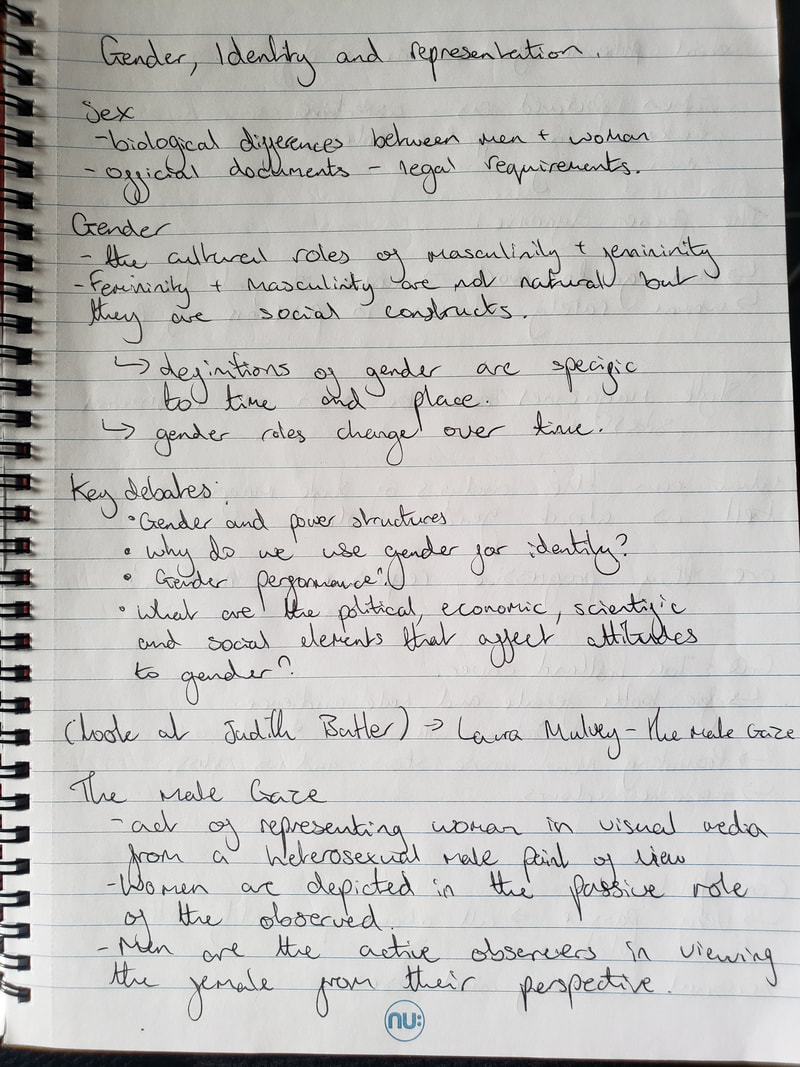 Gender, Identity and representation.
Sex
-biological differences between men + woman
- official documents - legal requirements.
Gender
- the cultural roles of masculinity + femininity
-Femininity + Masculinity are not natural but
they are social constructs.
↳ definitions of gender are specific
to time and place.
↳ gender roles change over time.
Key debates:
• Gender and power structures
• Why do we use gender for identity?
• Gender performance?
• What are the political, economic, scientific
and social elements that affect attitudes
to gender?
(Look at Judith Butler) → Laura Mulvey - The Male Gaze
The Male Gaze
- act of representing woman in visual media
from a heterosexual male point of view
-Women are depicted in the passive role
of the observed.
- Men are the active observers in viewing
the female from their perspective.
nu: